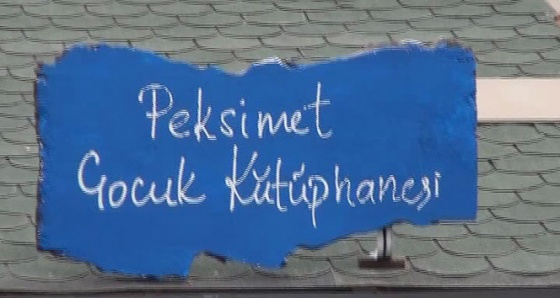 Peksimet
Çocuk Kütüphanesi